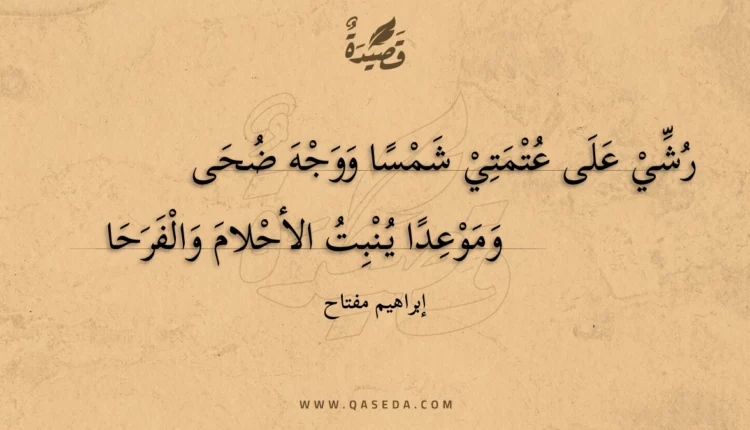 قَصِيدَةٌ
رُشِّيْ عَلَى عُتْمَتِيْ شَمْسًا وَوَجْهَ ضُحَى
وَمَوْعِدًا يُنْبِتُ الأحْلامَ وَالْفَرَحَا
إبراهيم مفتاح
WWW.QASEDA.COM